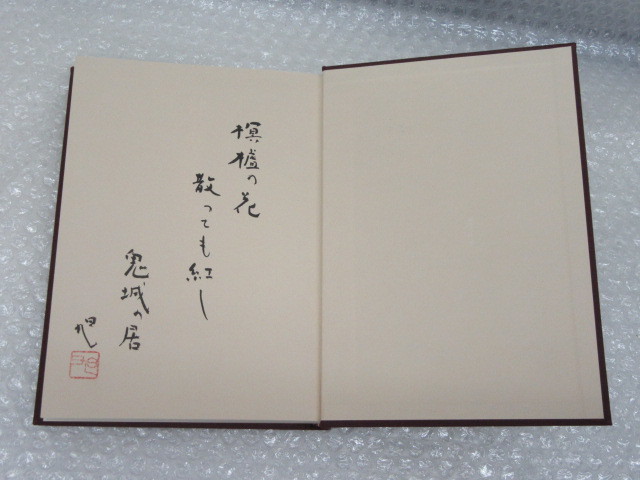 榠樝の花
散っても紅し
鬼城の居
旭